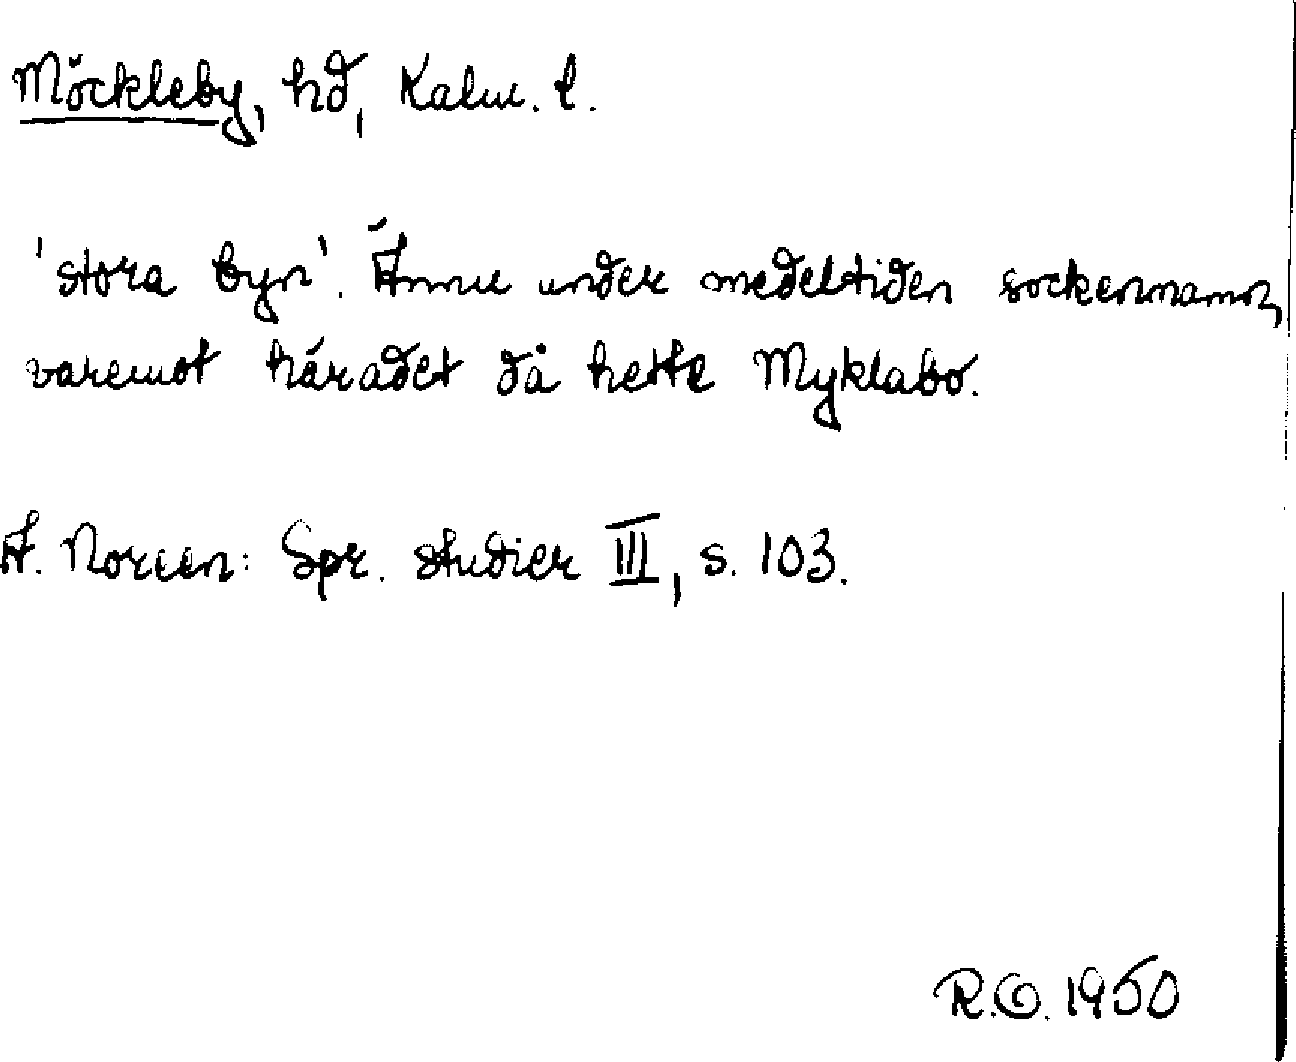 Möckleby, hd, Kalm. l.
'stora byn'. Ännu under medeltiden sockennamn,
varemot häradet då hette Myklabo.
A. Noreen: Spr. studier III, s. 103.
R.O. 1950